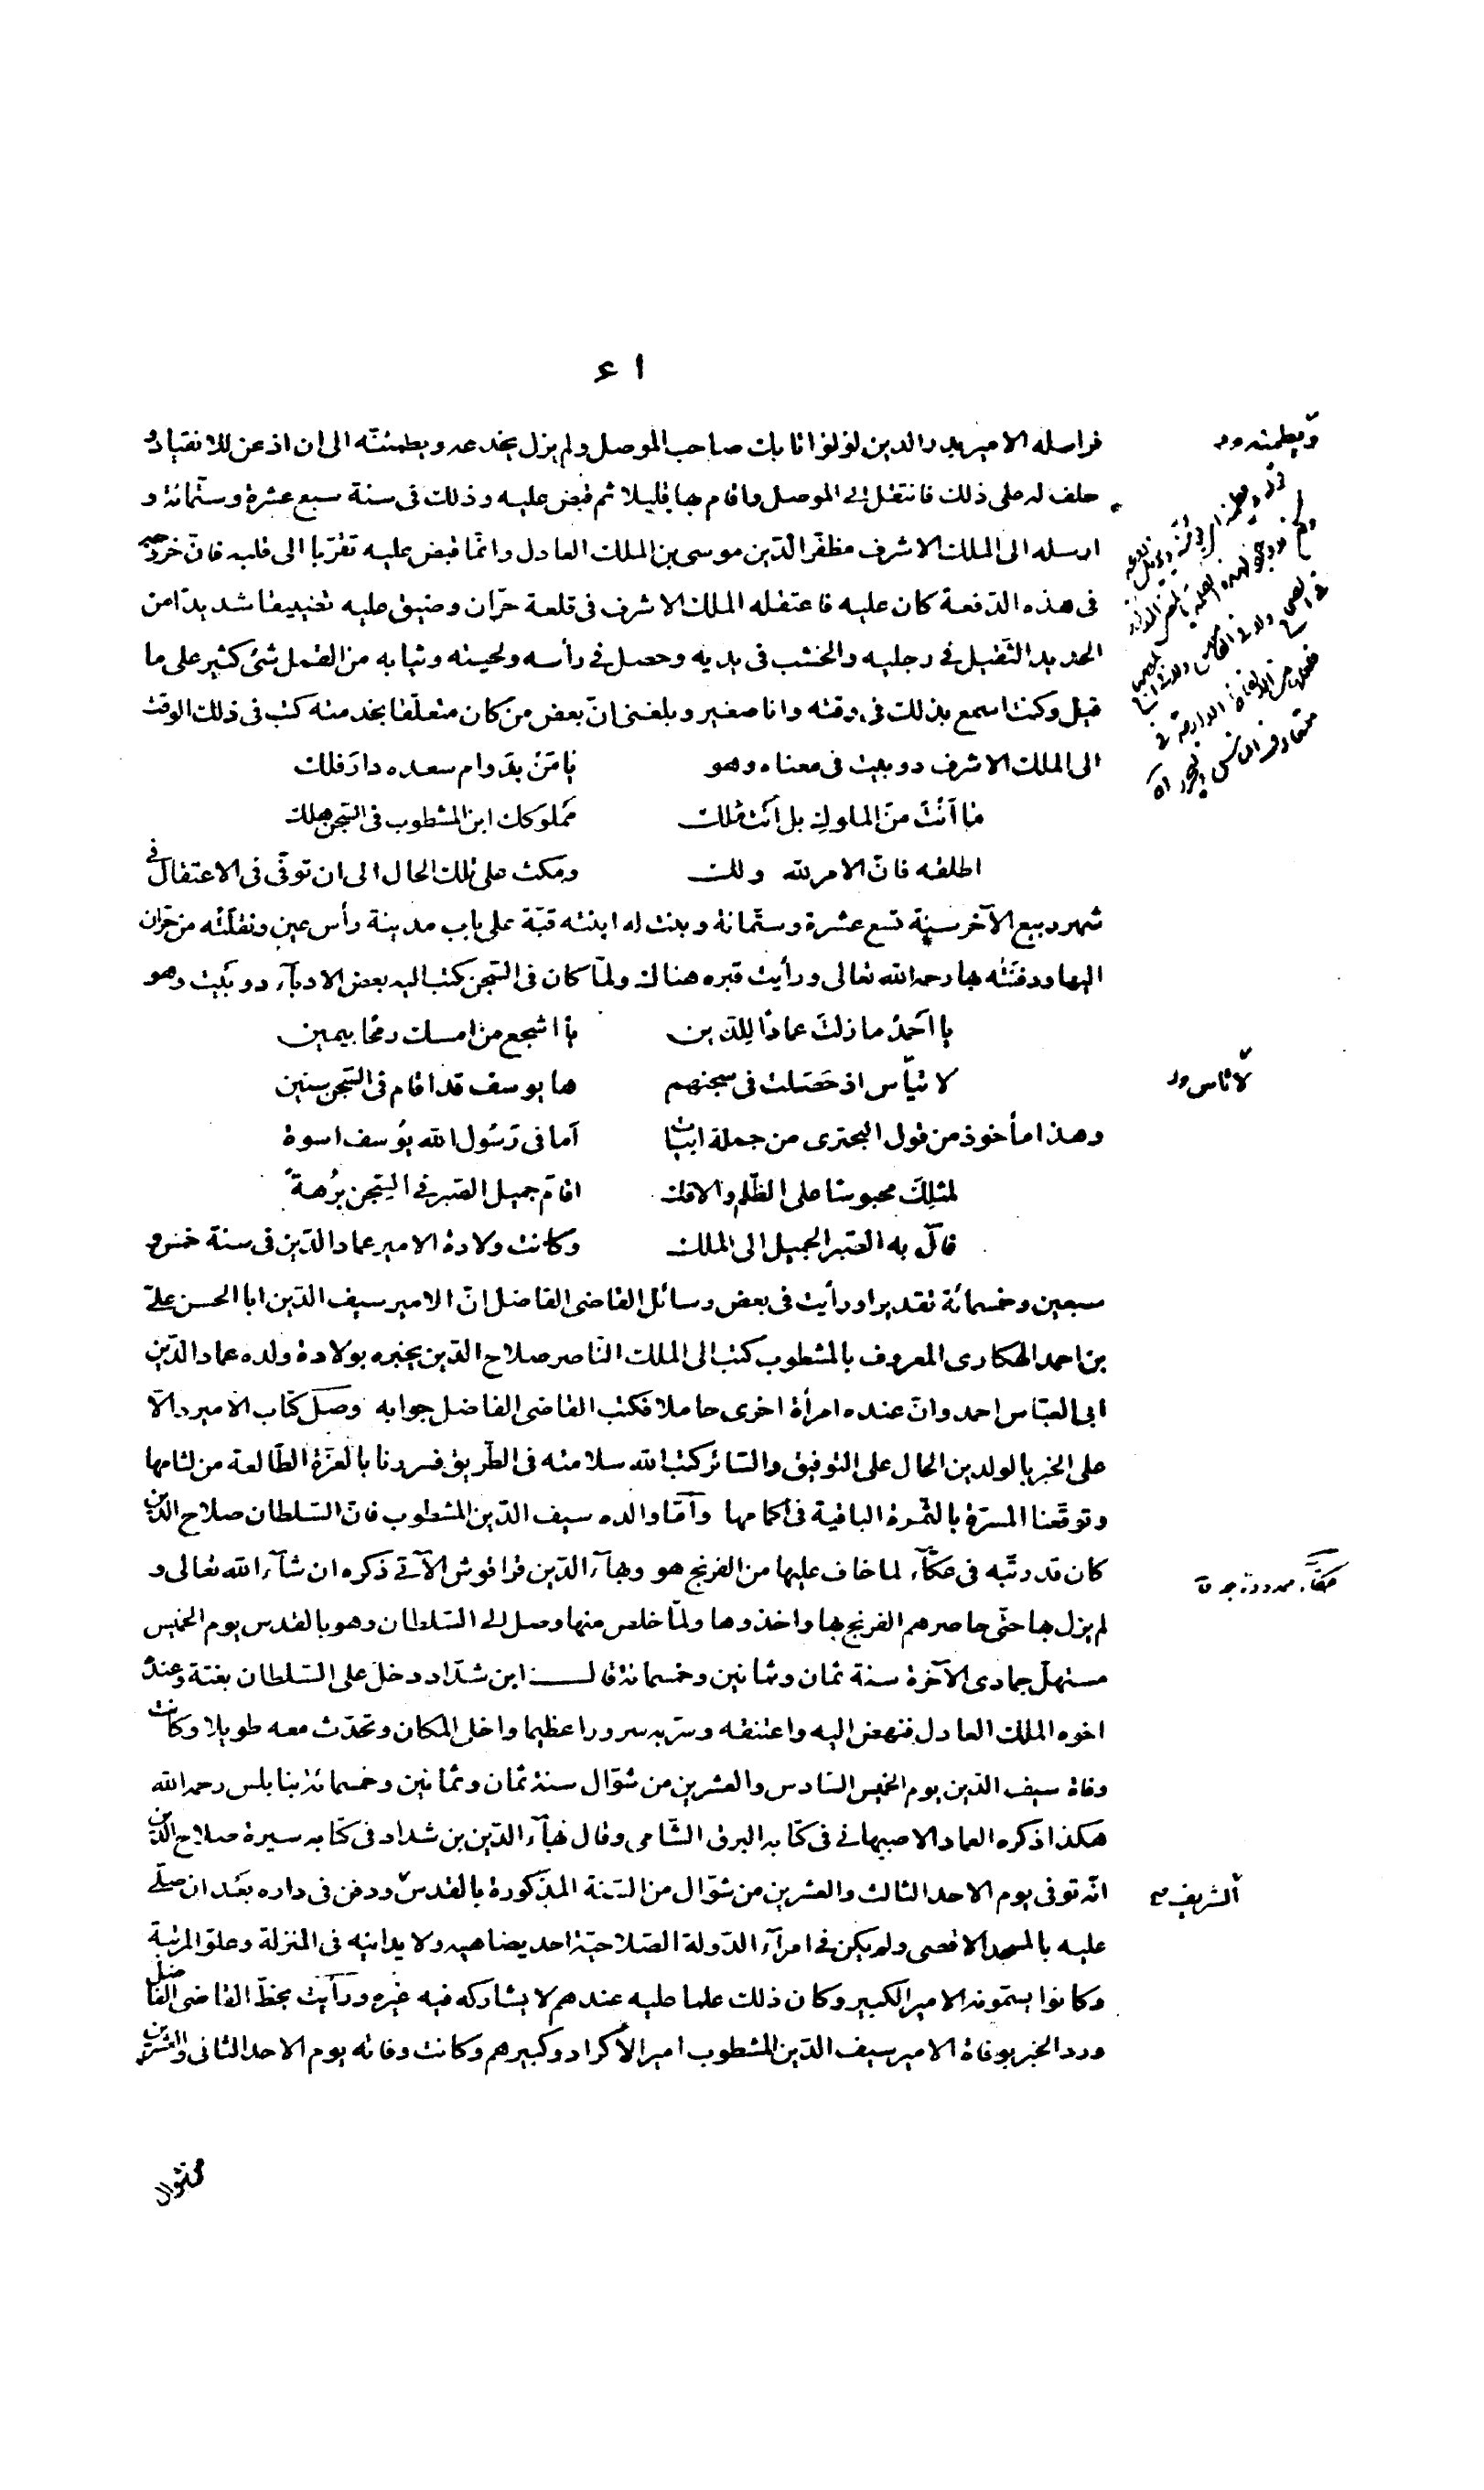 ٤١
فراسله الامير بدر الدين لؤلؤ اتابك صاحب الموصل ولم يزل يخدعه ويطمئنّه الى ان اذعن للانقياد و
حلف له على ذلك فانتقل الى الموصل واقام بها قليلا ثم قبض عليه وذلك فى سنة سبع عشرة وستّمائة و
ارسله الى الملك الاشرف مظفّر الدّين موسى بن الملك العادل وانّما قبض عليه تقرّبا الى قلبه فانّ خروجه
فى هذه الدّفعة كان عليه فاعتقله الملك الاشرف فى قلعة حرّان وضيق عليه تضييقا شديدا من
الحديد الثّقيل فى رجليه والخشب فى يديه وحصل فى رأسه ولحيته وثيابه من القمل شئ كثير على ما
قيل وكنت اسمع بذلك فى وقته وانا صغير وبلغنى انّ بعض من كان متعلّقا بخدمته كتب فى ذلك الوقت
الى الملك الاشرف دوبيت فى معناه وهو يا مَنْ بدَوام سعده دارَ فلك
ما اَنْتَ منَ الملوكِ بل اَنْت مَلك مَملوكك ابن المشطوب فى السّجن هلك
اطلقه فانّ الامر لله ولك ومكث على تلك الحال الى ان توفّى فى الاعتقال فى
شهر ربيع الآخر سنة تسع عشرة وستّمائة وبنت له ابنته قبّة على باب مدينة رأس عين ونقلَتْه من حرّان
اليها ودفنَتْه بها رحمه الله تعالى ورأيت قبره هناك ولمّا كان فى السّجن كتب اليه بعض الادبآء دوبَيْت وهو
يا اَحمَدُ ما زلتَ عمادًا لِلدّين يا اشجع من امسك رمحًا بيمين
لا تيأس اذ حَصَلت فى سجنهم ها يوسف قد اقام فى السّجن سنين
وهذا مأخوذ من قول البحترى من جملة ابيات اَما فى رَسُول الله يُوسف اسوة
لمثلِكَ محبوسًا على الظّلم والافك اقامَ جميل الصّبر فى السّجن بُرهةً
فآلَ به الصّبر الجميل الى الملك وكانت ولادة الامير عماد الدّين فى سنة خمس و
سبعين وخمسمائة تقديرا ورأيت فى بعض رسائل القاضى الفاضل انّ الامير سيف الدّين ابا الحسن علىّ
بن احمد الهكارى المعروف بالمشطوب كتب الى الملك النّاصر صلاح الدّين يخبره بولادة ولده عماد الدّين
ابى العبّاس احمد وانّ عنده امرأة اخرى حاملا فكتب القاضى الفاضل جوابه وصَلَ كتاب الامير دالّا
على الخبر بالولدين الحال على التوفيق والسّائر كتب الله سلامته فى الطّريق فسررنا بالغرّة الطّالعة من لثامها
وتوقّعنا المسرّة بالثّمرة الباقية فى اكمامها وأمّا والده سيف الدّين المشطوب فانّ السّلطان صلاح الدّين
كان قد رتّبه فى عكّآء لما خاف عليها من الفرنج هو وبهآء الدّين قراقوش الآتى ذكره ان شآء الله تعالى و
لم يزل بها حتّى حاصرهم الفرنج بها واخذوها ولمّا خلص منها وصل الى السّلطان وهو بالقدس يوم الخميس
مستهلّ جمادى الآخرة سنة ثمان وثمانين وخمسمائة قال ابن شدّاد دخل على السّلطان بغتة وعنده
اخوه الملك العادل فنهض اليه واعتنقه وسرّ به سرورا عظيما واخلى المكان وتحدّث معه طويلا وكانت
وفاة سيف الدّين يوم الخميس السّادس والعشرين من شوّال سنة ثمان وثمانين وخمسمائة بنابلس رحمه الله
هكذا ذكره العماد الاصبهانى فى كتابه البرق الشّامى وقال بهآء الدّين بن شداد فى كتابه سيرة صلاح الدّين
انّه توفى يوم الاحد الثالث والعشرين من شوّال من السّنة المذكورة بالقدس ودفن فى داره بعد ان صلّى
عليه بالمسجد الاقصى ولم يكن فى امرآء الدّولة الصّلاحيّة احد يضاهيه ولا يدانيه فى المنزلة وعلوّ المرتبة
وكانوا يسمّونه الامير الكبير وكان ذلك علما عليه عندهم لا يشاركه فيه غيره ورأيت بخطّ القاضى الفاضل
ورد الخبر بوفاة الامير سيف الدّين المشطوب امير الأكراد وكبيرهم وكانت وفاته يوم الاحد الثانى والعشرين
من شوال
ويطمنه
لا تأس
عكّاء ممدودة
الشريف